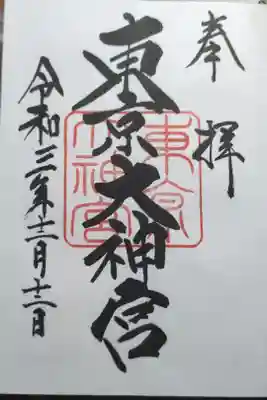 奉拝
東京大神宮
東京大神宮
令和三年十二月十二日